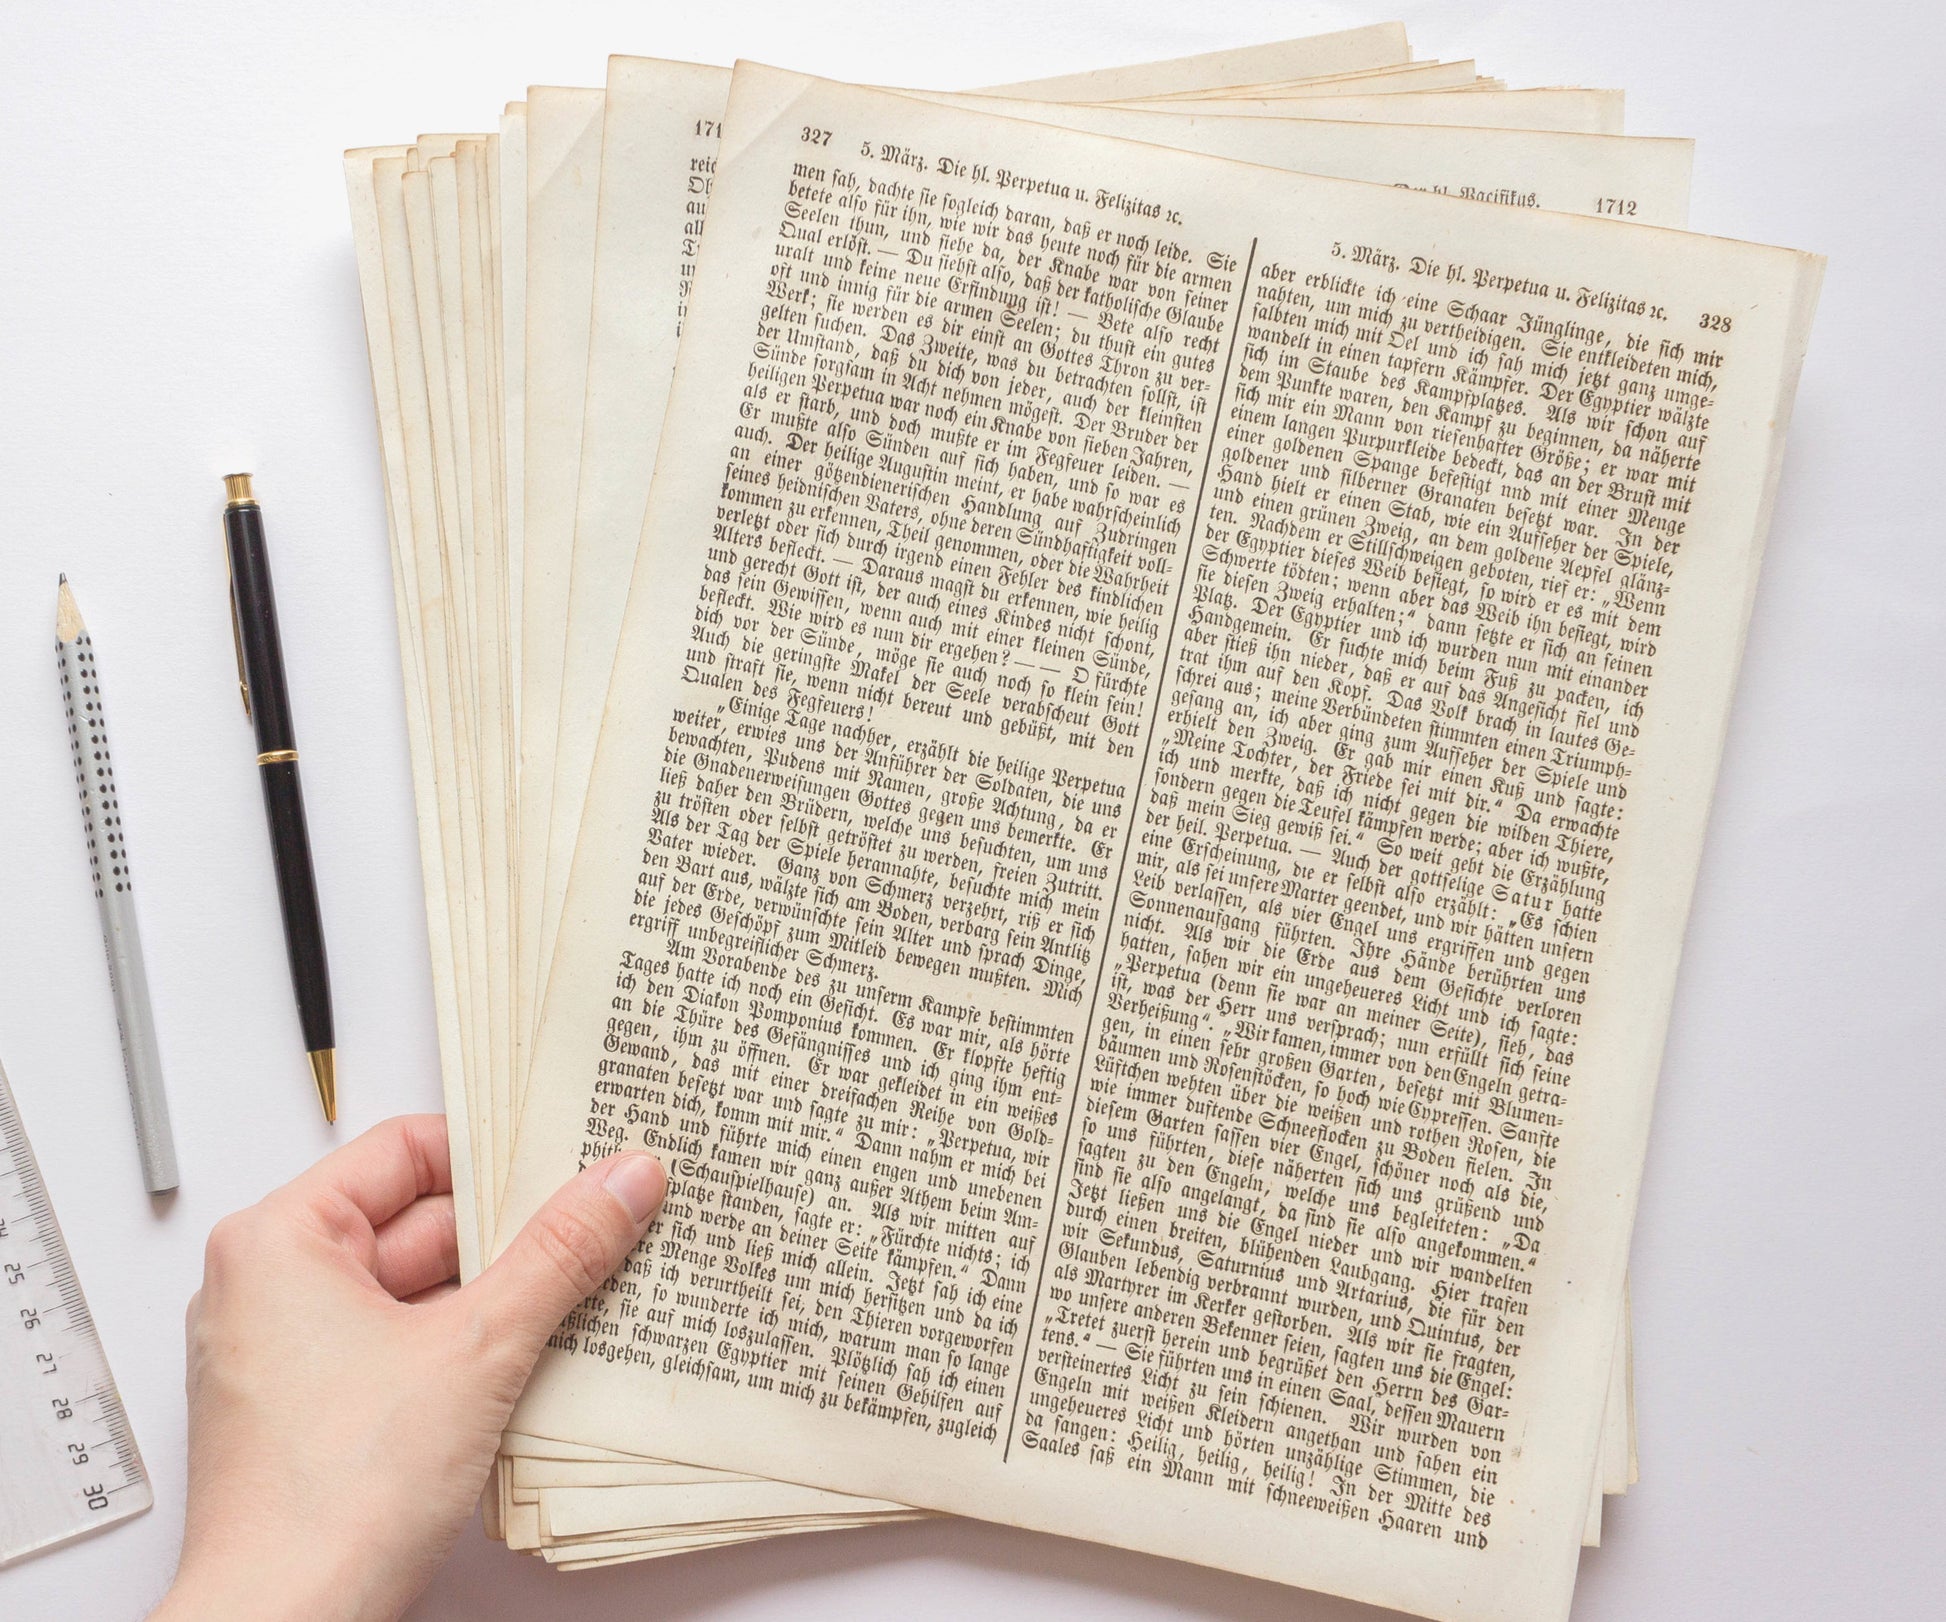 327
5. März. Die hl. Perpetua u. Felizitas ꝛc.
men ſah, dachte ſie ſogleich daran, daß er noch leide. Sie
betete alſo für ihn, wie wir das heute noch für die armen
Seelen thun, und ſiehe da, der Knabe war von ſeiner
Qual erlöſt. — Du ſiehſt alſo, daß der katholiſche Glaube
uralt und keine neue Erfindung iſt! — Bete alſo recht
oft und innig für die armen Seelen; du thuſt ein gutes
Werk; ſie werden es dir einſt an Gottes Thron zu ver-
gelten ſuchen. Das Zweite, was du betrachten ſollſt, iſt
der Umſtand, daß du dich von jeder, auch der kleinſten
Sünde ſorgſam in Acht nehmen mögeſt. Der Bruder der
heiligen Perpetua war noch ein Knabe von ſieben Jahren,
als er ſtarb, und doch mußte er im Fegfeuer leiden. —
Er mußte alſo Sünden auf ſich haben, und ſo war es
auch. Der heilige Auguſtin meint, er habe wahrſcheinlich
an einer götzendieneriſchen Handlung auf Zudringen
ſeines heidniſchen Vaters, ohne deren Sündhaftigkeit voll-
kommen zu erkennen, Theil genommen, oder die Wahrheit
verletzt oder ſich durch irgend einen Fehler des kindlichen
Alters befleckt. — Daraus magſt du erkennen, wie heilig
und gerecht Gott iſt, der auch eines Kindes nicht ſchont,
das ſein Gewiſſen, wenn auch mit einer kleinen Sünde,
befleckt. Wie wird es nun dir ergehen? — — O fürchte
dich vor der Sünde, möge ſie auch noch ſo klein ſein!
Auch die geringſte Makel der Seele verabſcheut Gott
und ſtraft ſie, wenn nicht bereut und gebüßt, mit den
Qualen des Fegfeuers!
„Einige Tage nachher, erzählt die heilige Perpetua
weiter, erwies uns der Anführer der Soldaten, die uns
bewachten, Pudens mit Namen, große Achtung, da er
die Gnadenerweiſungen Gottes gegen uns bemerkte. Er
ließ daher den Brüdern, welche uns beſuchten, um uns
zu tröſten oder ſelbſt getröſtet zu werden, freien Zutritt.
Als der Tag der Spiele herannahte, beſuchte mich mein
Vater wieder. Ganz von Schmerz verzehrt, riß er ſich
den Bart aus, wälzte ſich am Boden, verbarg ſein Antlitz
auf der Erde, verwünſchte ſein Alter und ſprach Dinge,
die jedes Geſchöpf zum Mitleid bewegen mußten. Mich
ergriff unbegreiflicher Schmerz.
Am Vorabende des zu unſerm Kampfe beſtimmten
Tages hatte ich noch ein Geſicht. Es war mir, als hörte
ich den Diakon Pomponius kommen. Er klopfte heftig
an die Thüre des Gefängniſſes und ich ging ihm ent-
gegen, ihm zu öffnen. Er war gekleidet in ein weißes
Gewand, das mit einer dreifachen Reihe von Gold-
granaten beſetzt war und ſagte zu mir: „Perpetua, wir
erwarten dich, komm mit mir.“ Dann nahm er mich bei
der Hand und führte mich einen engen und unebenen
Weg. Endlich kamen wir ganz außer Athem beim Am-
(Schauſpielhauſe) an. Als wir mitten auf
ſtanden, ſagte er: „Fürchte nichts; ich
und werde an deiner Seite kämpfen.“ Dann
er ſich und ließ mich allein. Jetzt ſah ich eine
Menge Volkes um mich herſitzen und da ich
daß ich verurtheilt ſei, den Thieren vorgeworfen
ſo wunderte ich mich, warum man ſo lange
ſie auf mich loszulaſſen. Plötzlich ſah ich einen
ſchwarzen Egyptier mit ſeinen Gehilfen auf
mich losgehen, gleichſam, um mich zu bekämpfen, zugleich
5. März. Die hl. Perpetua u. Felizitas ꝛc.
328
aber erblickte ich eine Schaar Jünglinge, die ſich mir
nahten, um mich zu vertheidigen. Sie entkleideten mich,
ſalbten mich mit Oel und ich ſah mich jetzt ganz umge-
wandelt in einen tapfern Kämpfer. Der Egyptier wälzte
ſich im Staube des Kampfplatzes. Als wir ſchon auf
dem Punkte waren, den Kampf zu beginnen, da näherte
ſich mir ein Mann von rieſenhafter Größe; er war mit
einem langen Purpurkleide bedeckt, das an der Bruſt mit
einer goldenen Spange befeſtigt nnd mit einer Menge
goldener und ſilberner Granaten beſetzt war. In der
Hand hielt er einen Stab, wie ein Aufſeher der Spiele,
und einen grünen Zweig, an dem goldene Aepfel glänz-
ten. Nachdem er Stillſchweigen geboten, rief er: „Wenn
der Egyptier dieſes Weib beſiegt, ſo wird er es mit dem
Schwerte tödten; wenn aber das Weib ihn beſiegt, wird
ſie dieſen Zweig erhalten;“ dann ſetzte er ſich an ſeinen
Platz. Der Egyptier und ich wurden nun mit einander
Handgemein. Er ſuchte mich beim Fuß zu packen, ich
aber ſtieß ihn nieder, daß er auf das Angeſicht fiel und
trat ihm auf den Kopf. Das Volk brach in lautes Ge-
ſchrei aus; meine Verbündeten ſtimmten einen Triumph-
geſang an, ich aber ging zum Aufſeher der Spiele und
erhielt den Zweig. Er gab mir einen Kuß und ſagte:
„Meine Tochter, der Friede ſei mit dir.“ Da erwachte
ich und merkte, daß ich nicht gegen die wilden Thiere,
ſondern gegen die Teufel kämpfen werde; aber ich wußte,
daß mein Sieg gewiß ſei.“ So weit geht die Erzählung
der heil. Perpetua. — Auch der gottſelige Satur hatte
eine Erſcheinung, die er ſelbſt alſo erzählt: „Es ſchien
mir, als ſei unſere Marter geendet, und wir hätten unſern
Leib verlaſſen, als vier Engel uns ergriffen und gegen
Sonnenaufgang führten. Ihre Hände berührten uns
nicht. Als wir die Erde aus dem Geſichte verloren
hatten, ſahen wir ein ungeheueres Licht und ich ſagte:
„Perpetua (denn ſie war an meiner Seite), ſieh, das
iſt, was der Herr uns verſprach; nun erfüllt ſich ſeine
Verheißung“. „Wir kamen, immer von den Engeln getra-
gen, in einen ſehr großen Garten, beſetzt mit Blumen-
bäumen und Roſenſtöcken, ſo hoch wie Cypreſſen. Sanfte
Lüftchen wehten über die weißen und rothen Roſen, die
wie immer duftende Schneeflocken zu Boden fielen. In
dieſem Garten ſaſſen vier Engel, ſchöner noch als die,
ſo uns führten, dieſe näherten ſich uns grüßend und
ſagten zu den Engeln, welche uns begleiteten: „Da
ſind ſie alſo angelangt, da ſind ſie alſo angekommen.“
Jetzt ließen uns die Engel nieder und wir wandelten
durch einen breiten, blühenden Laubgang. Hier trafen
wir Sekundus, Saturnius und Artarius, die für den
Glauben lebendig verbrannt wurden, und Quintus, der
als Martyrer im Kerker geſtorben. Als wir ſie fragten,
wo unſere anderen Bekenner ſeien, ſagten uns die Engel:
„Tretet zuerſt herein und begrüßet den Herrn des Gar-
tens.“ — Sie führten uns in einen Saal, deſſen Mauern
verſteinertes Licht zu ſein ſchienen. Wir wurden von
Engeln mit weißen Kleidern angethan und ſahen ein
ungeheueres Licht und hörten unzählige Stimmen, die
da ſangen: Heilig, heilig, heilig! In der Mitte des
Saales ſaß ein Mann mit ſchneeweißen Haaren und
hl. Pacifikus.
1712
25
26
27
28
29
30